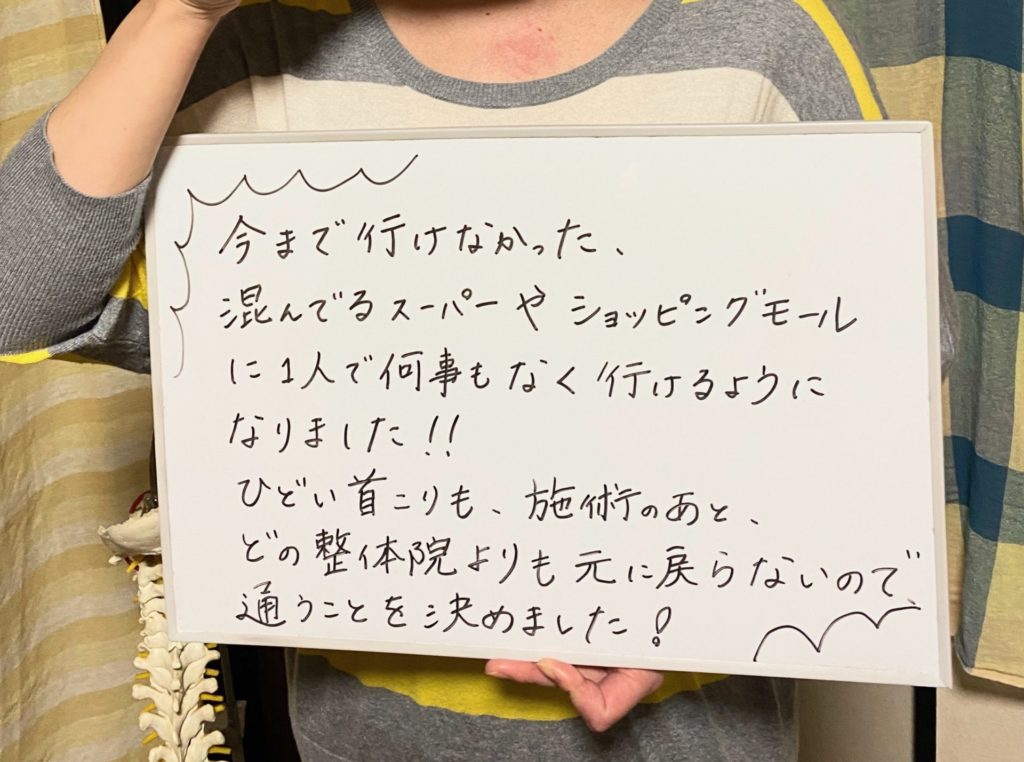 今まで行けなかった、
混んでるスーパーや ショッピングモール
に1人で何事もなく行けるように
なりました!!
ひどい首こりも、施術のあと、
どの整体院よりも元に戻らないので、
通うことを決めました!